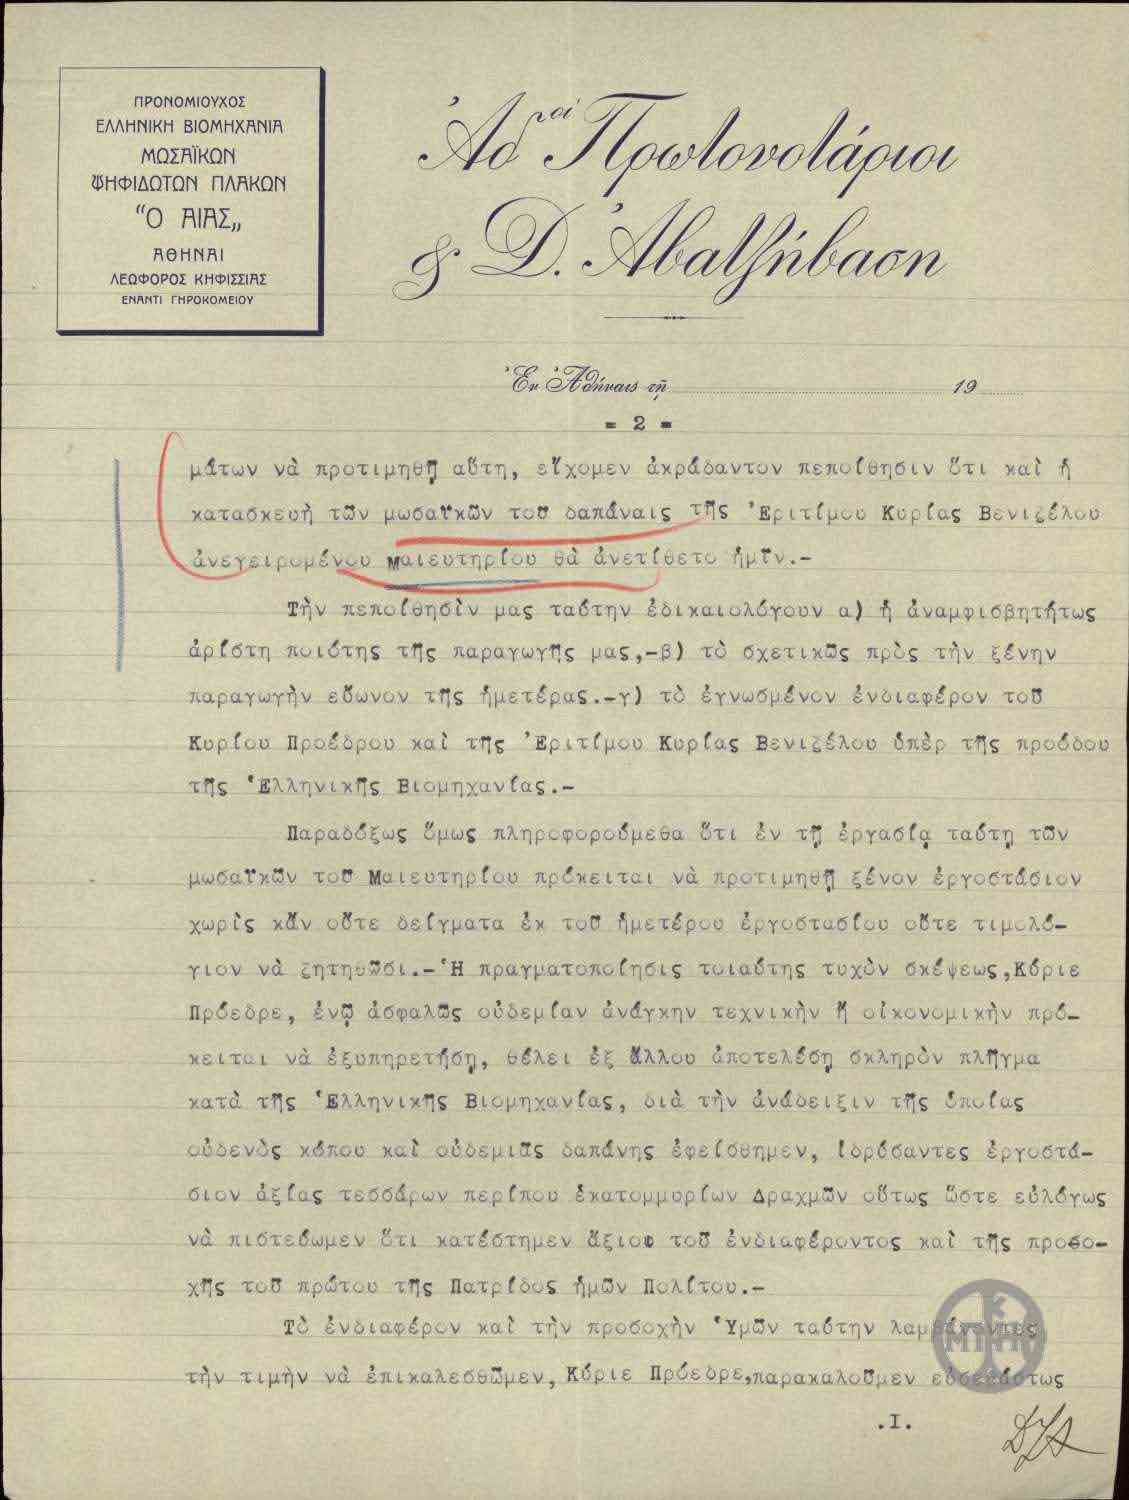 ΠΡΟΝΟΜΙΟΥΧΟΣ
ΕΛΛΗΝΙΚΗ ΒΙΟΜΗΧΑΝΙΑ
ΜΩΣΑΪΚΩΝ
ΨΗΦΙΔΩΤΩΝ ΠΛΑΚΩΝ
"Ο ΑΙΑΣ„
ΑΘΗΝΑΙ
ΛΕΩΦΟΡΟΣ ΚΗΦΙΣΣΙΑΣ
ΕΝΑΝΤΙ ΓΗΡΟΚΟΜΕΙΟΥ
Ἀδφοὶ Πρωτονοτάριοι
& Δ. Ἀβατζήβαση
Ἐν Ἀθήναις τῇ 19
= 2 =
μάτων νὰ προτιμηθῇ αὕτη, εἴχομεν ἀκράδαντον πεποίθησιν ὅτι καὶ ἡ
κατασκευὴ τῶν μωσαϊκῶν τοῦ δαπάναις τῆς Ἐριτίμου Κυρίας Βενιζέλου
ἀνεγειρομένου Μαιευτηρίου θὰ ἀνετίθετο ἡμῖν.-
Τὴν πεποίθησὶν μας ταύτην ἐδικαιολόγουν α) ἡ ἀναμφισβητήτως
ἀρίστη ποιότης τῆς παραγωγῆς μας,-β) τὸ σχετικῶς πρὸς τὴν ξένην
παραγωγὴν εὔωνον τῆς ἡμετέρας.-γ) τὸ ἐγνωσμένον ἐνδιαφέρον τοῦ
Κυρίου Προέδρου καὶ τῆς Ἐριτίμου Κυρίας Βενιζέλου ὑπὲρ τῆς προόδου
τῆς Ἑλληνικῆς Βιομηχανίας.-
Παραδόξως ὅμως πληροφορούμεθα ὅτι ἐν τῇ ἐργασίᾳ ταύτῃ τῶν
μωσαϊκῶν τοῦ Μαιευτηρίου πρόκειται νὰ προτιμηθῇ ξένον ἐργοστάσιον
χωρὶς κἂν οὔτε δείγματα ἐκ τοῦ ἡμετέρου ἐργοστασίου οὔτε τιμολό-
γιον νὰ ζητηθῶσι.-Ἡ πραγματοποίησις τοιαύτης τυχὸν σκέψεως,Κύριε
Πρόεδρε, ἐνῷ ἀσφαλῶς οὐδεμίαν ἀνάγκην τεχνικὴν ἢ οἰκονομικὴν πρό-
κειται νὰ ἐξυπηρετήσῃ, θέλει ἐξ ἄλλου ἀποτελέσῃ σκληρὸν πλῆγμα
κατὰ τῆς Ἑλληνικῆς Βιομηχανίας, διὰ τὴν ἀνάδειξιν τῆς ὁποίας
οὐδενὸς κόπου καὶ οὐδεμιᾶς δαπάνης ἐφείσθημεν, ἱδρύσαντες ἐργοστά-
σιον ἀξίας τεσσάρων περίπου ἑκατομμυρίων Δραχμῶν οὕτως ὥστε εὐλόγως
νὰ πιστεύωμεν ὅτι κατέστημεν ἄξιοι τοῦ ἐνδιαφέροντος καὶ τῆς προσο-
χῆς τοῦ πρώτου τῆς Πατρίδος ἡμῶν Πολίτου.-
Τὸ ἐνδιαφέρον καὶ τὴν προσοχὴν Ὑμῶν ταύτην λαμβάνοντες
τὴν τιμὴν νὰ ἐπικαλεσθῶμεν, Κύριε Πρόεδρε,παρακαλοῦμεν εὐσεβάστως
.Ι.